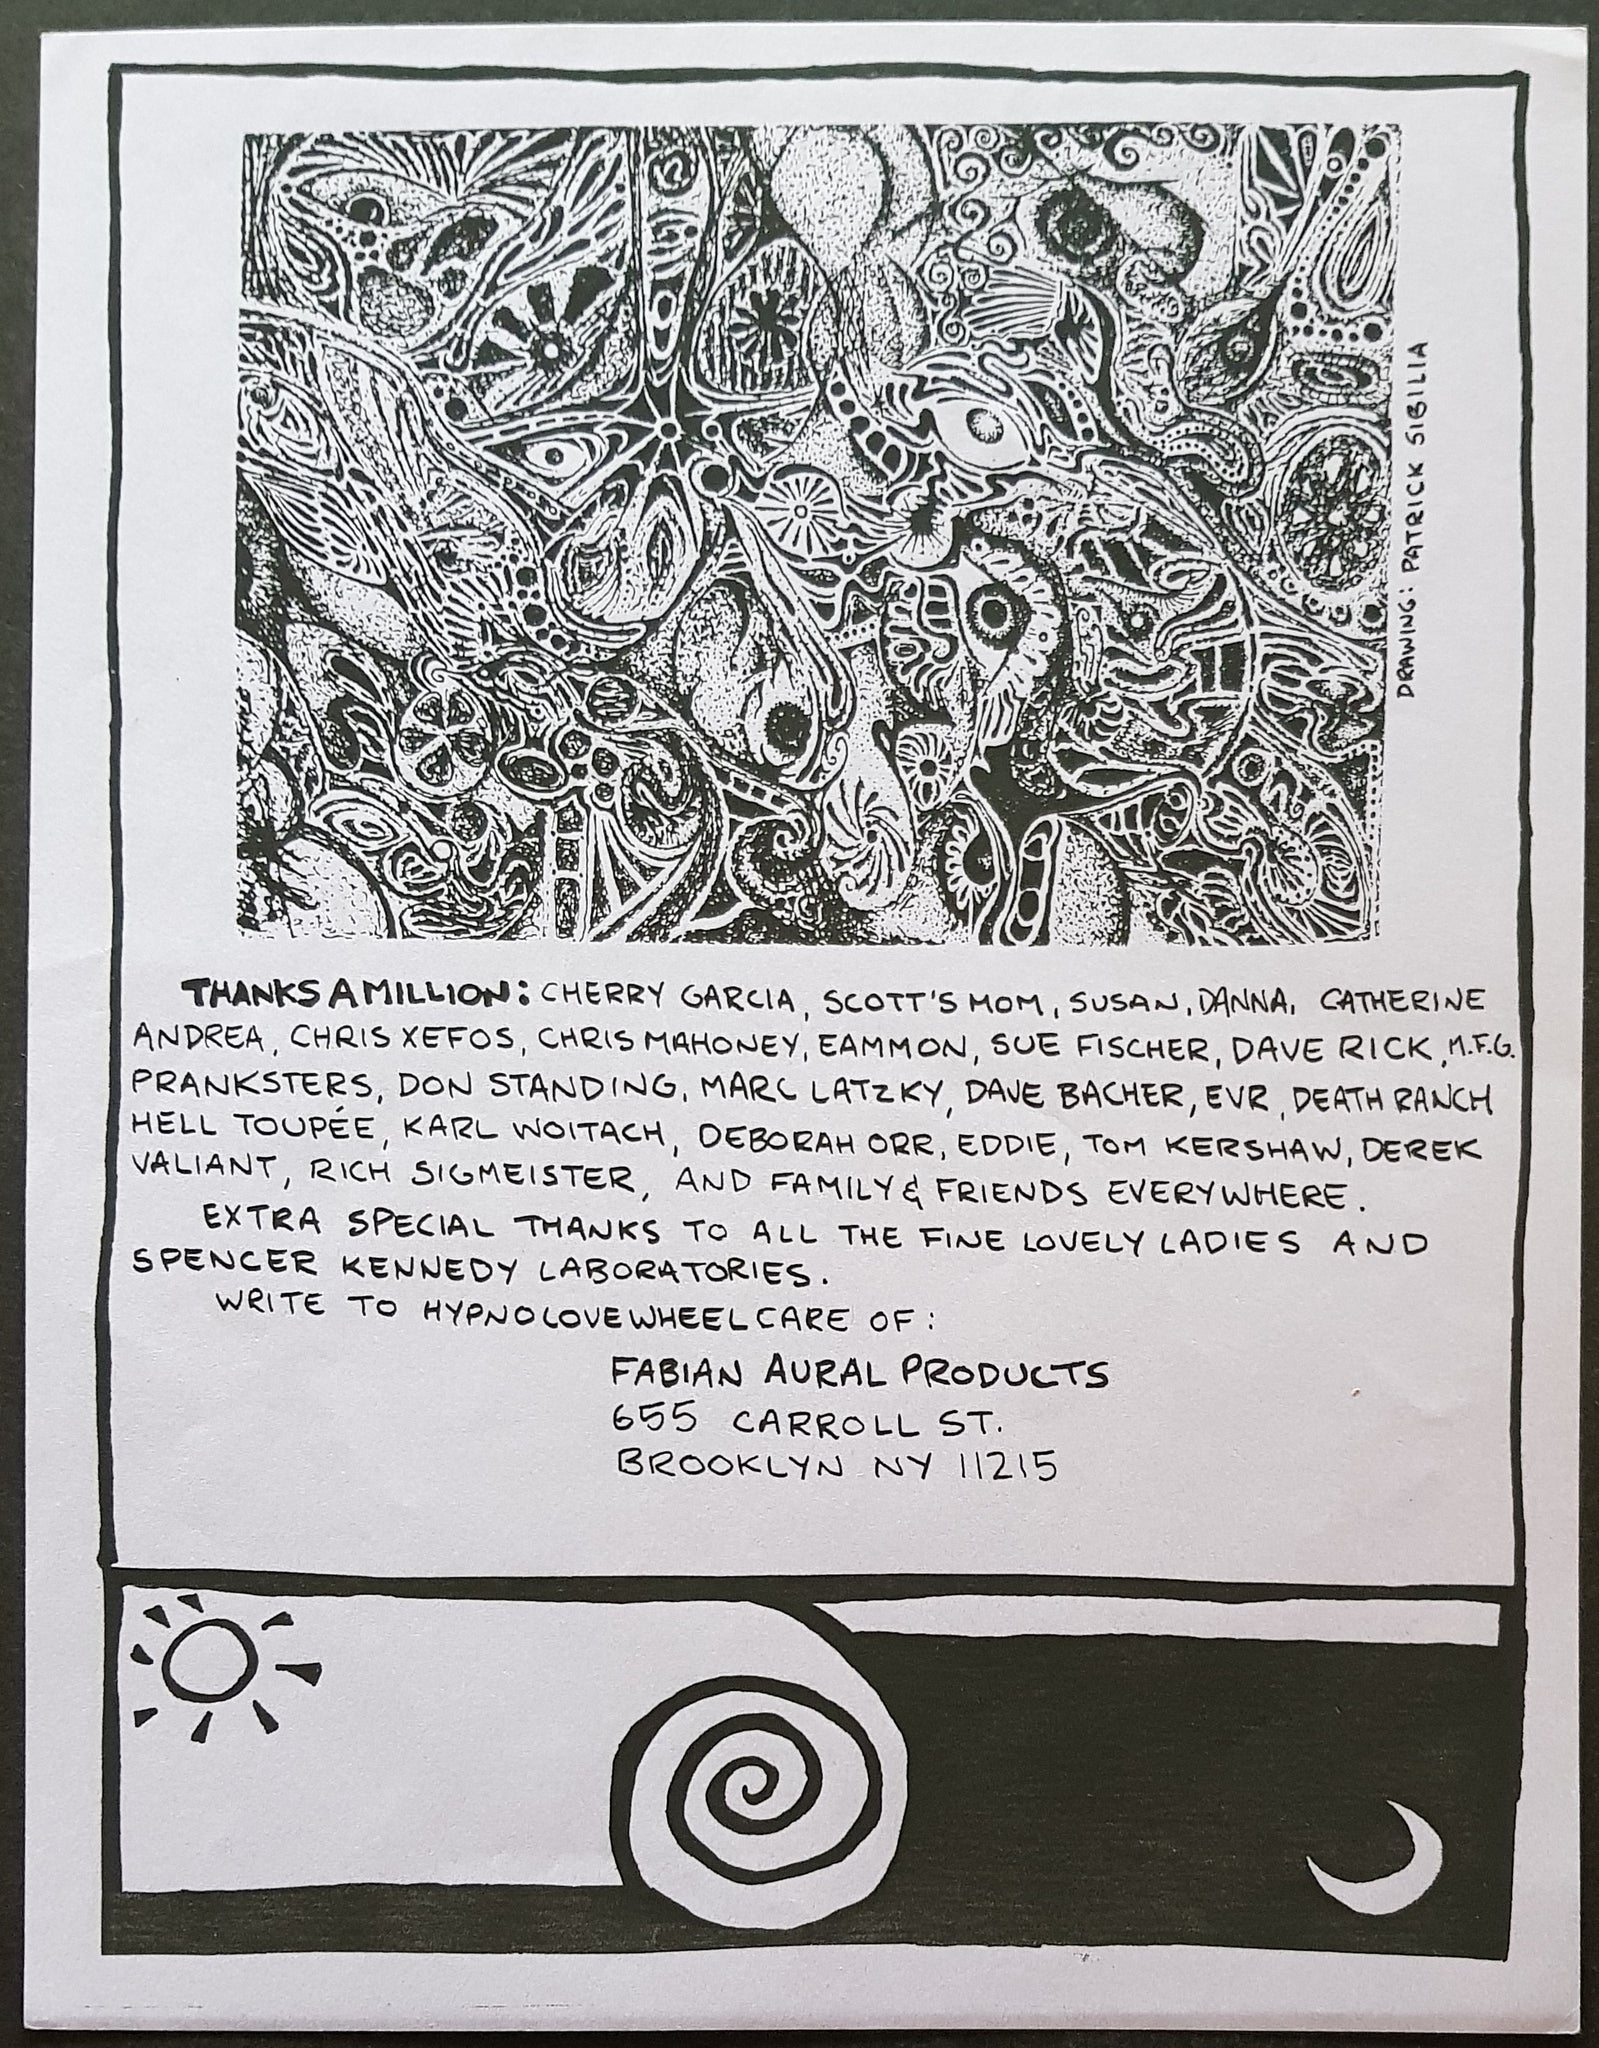 DRAWING: PATRICK SIBILIA
THANKS A MILLION: CHERRY GARCIA, SCOTT'S MOM, SUSAN, DANNA, CATHERINE
ANDREA, CHRIS XEFOS, CHRIS MAHONEY, EAMMON, SUE FISCHER, DAVE RICK, M.F.G.
PRANKSTERS, DON STANDING, MARC LATZKY, DAVE BACHER, EVR, DEATH RANCH
HELL TOUPÉE, KARL WOITACH, DEBORAH ORR, EDDIE, TOM KERSHAW, DEREK
VALIANT, RICH SIGMEISTER, AND FAMILY & FRIENDS EVERYWHERE.
EXTRA SPECIAL THANKS TO ALL THE FINE LOVELY LADIES AND
SPENCER KENNEDY LABORATORIES.
WRITE TO HYPNOLOVEWHEEL CARE OF:
FABIAN AURAL PRODUCTS
655 CARROLL ST.
BROOKLYN NY 11215